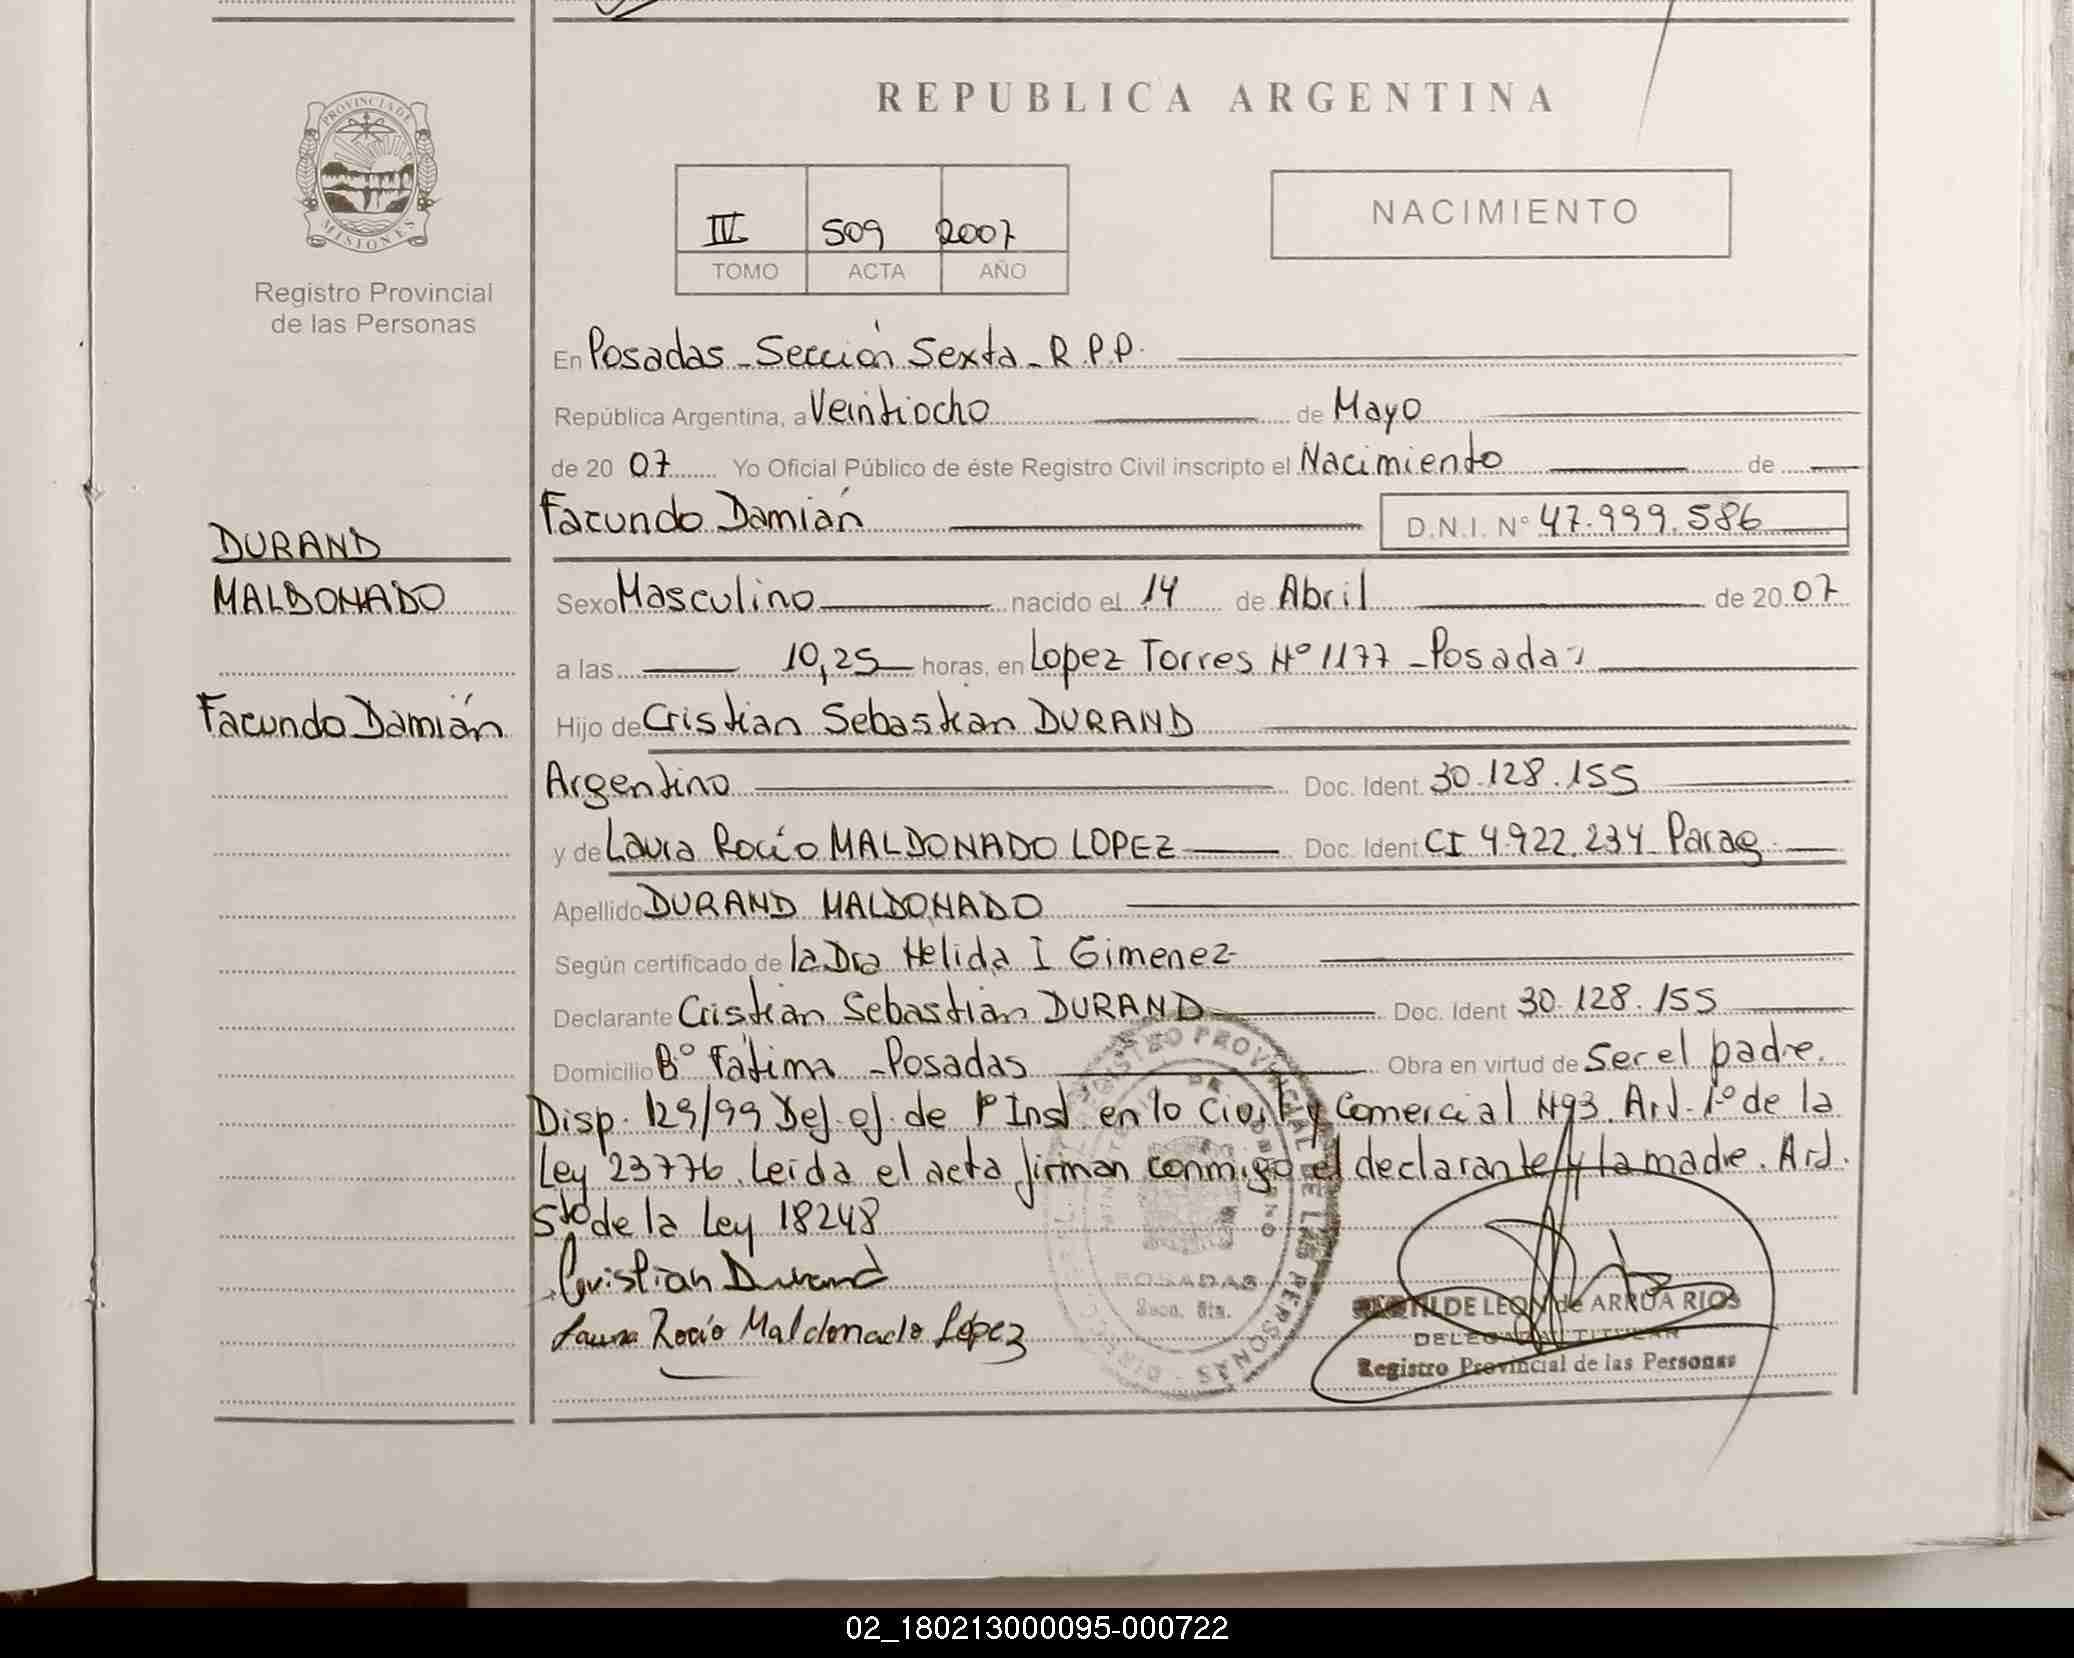 REPUBLICA ARGENTINA
PROVINCIA DE
MISIONES
Registro Provincial
de las Personas
III 509 2007
TOMO ACTA AÑO
NACIMIENTO
En Posadas - Sección Sexta - R.P.P.
República Argentina, a Veintiocho de Mayo
de 20 07 Yo Oficial Público de éste Registro Civil inscripto el Nacimiento de
Facundo Damián D.N.I. Nº 47.999.586
DURAND
MALDONADO
Sexo Masculino nacido el 14 de Abril de 20 07
a las 10,25 horas, en Lopez Torres Nº 1177 - Posadas
Facundo Damián
Hijo de Cristian Sebastian DURAND
Argentino Doc. Ident. 30.128.155
y de Laura Rocío MALDONADO LOPEZ Doc. Ident CI 4.922.234 Parag
Apellido DURAND MALDONADO
Según certificado de la Dra Helida I Gimenez
Declarante Cristian Sebastian DURAND Doc. Ident 30.128.155
Domicilio Bº Fátima - Posadas Obra en virtud de Ser el padre.
Disp. 129/99 Def. of. de 1º Inst en lo Civil y Comercial Nº3. Art. 1º de la
Ley 23776. Leída el acta firman conmigo el declarante y la madre. Art.
5to de la Ley 18248
Cristian Durand
Laura Rocío Maldonado López
REGISTRO PROVINCIAL DE LAS PERSONAS
POSADAS
Secc. 6ta.
DE LEON de ARRUA RIOS
DELEGADA TITULAR
Registro Provincial de las Personas
02_180213000095-000722